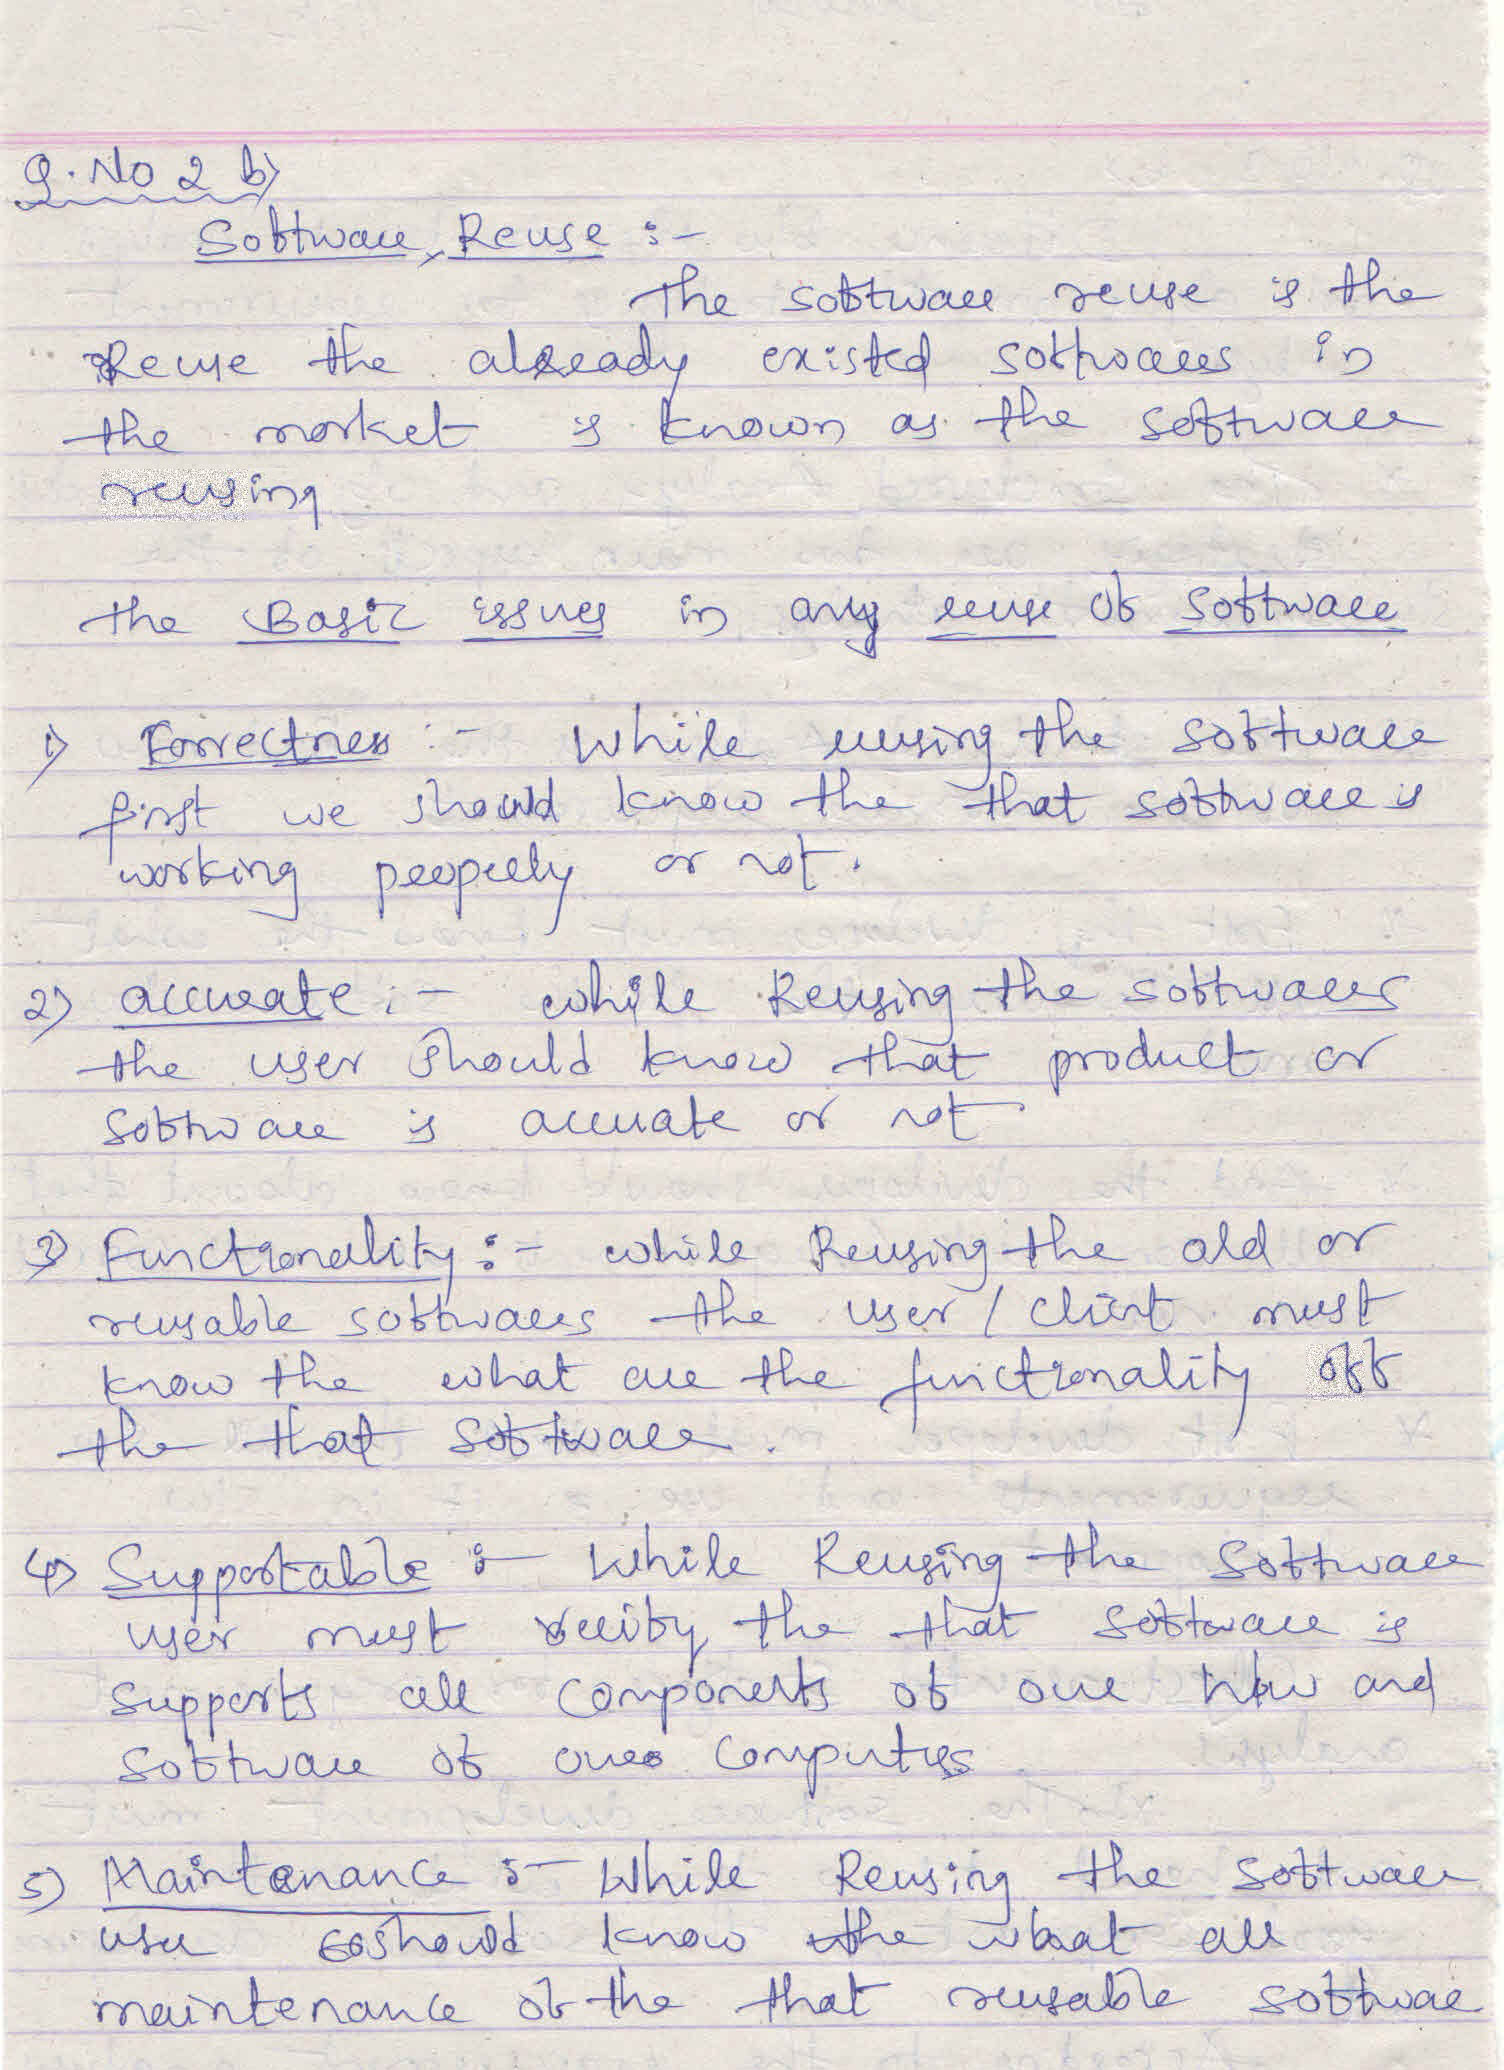 Q. No 2 b)
Software, Reuse :-
The software reuse is the
Reuse the already existed softwares in
the market is known as the software
reusing
the Basic issues in any reuse of software
1) Correctness :- While reusing the software
first we should know the that software is
working properly or not.
2) accurate :- while Reusing the softwares
the user should know that product or
software is accurate or not.
3) Functionality :- while Reusing the old or
reusable softwares the user / client must
know the what are the functionality off
the that software.
4) Supportable :- While Reusing the software
user must verify the that software is
supports all components of our h/w and
software of our computers
5) Maintenance :- While Reusing the software
user should know the what all
maintenance of the that reusable software